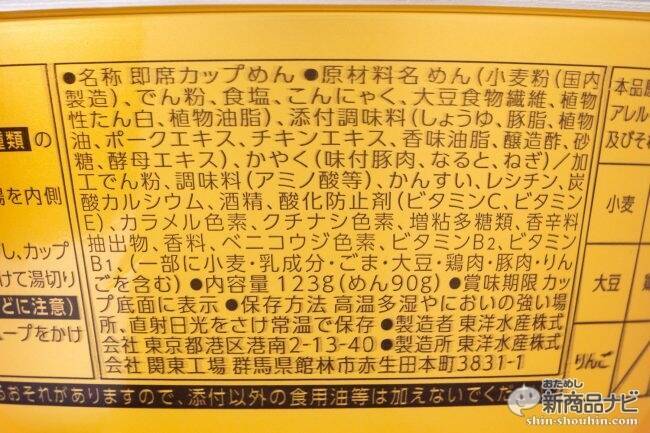 ●名称 即席カップめん ●原材料名 めん(小麦粉(国内
製造)、でん粉、食塩、こんにゃく、大豆食物繊維、植物
性たん白、植物油脂)、添付調味料(しょうゆ、豚脂、植物
油、ポークエキス、チキンエキス、香味油脂、醸造酢、砂
糖、酵母エキス)、かやく(味付豚肉、なると、ねぎ)/加
工でん粉、調味料(アミノ酸等)、かんすい、レシチン、炭
酸カルシウム、酒精、酸化防止剤(ビタミンC、ビタミン
E)、カラメル色素、クチナシ色素、増粘多糖類、香辛料
抽出物、香料、ベニコウジ色素、ビタミンB2、ビタミン
B1、(一部に小麦・乳成分・ごま・大豆・鶏肉・豚肉・りん
ごを含む) ●内容量 123g(めん90g) ●賞味期限 カッ
プ底面に表示 ●保存方法 高温多湿やにおいの強い場
所、直射日光をさけ常温で保存 ●製造者 東洋水産株式
会社 東京都港区港南2-13-40 ●製造所 東洋水産株式
会社 関東工場 群馬県館林市赤生田本町3831-1
種類 の
湯を内側
し、カップ
けて湯切り
どに注意)
ープをかけ
本品原
アレル
及びそ
小麦
大豆
りんご
るおそれがありますので、添付以外の食用油等は加えないでくだ
おためし
新商品ナビ
shin-shouhin.com